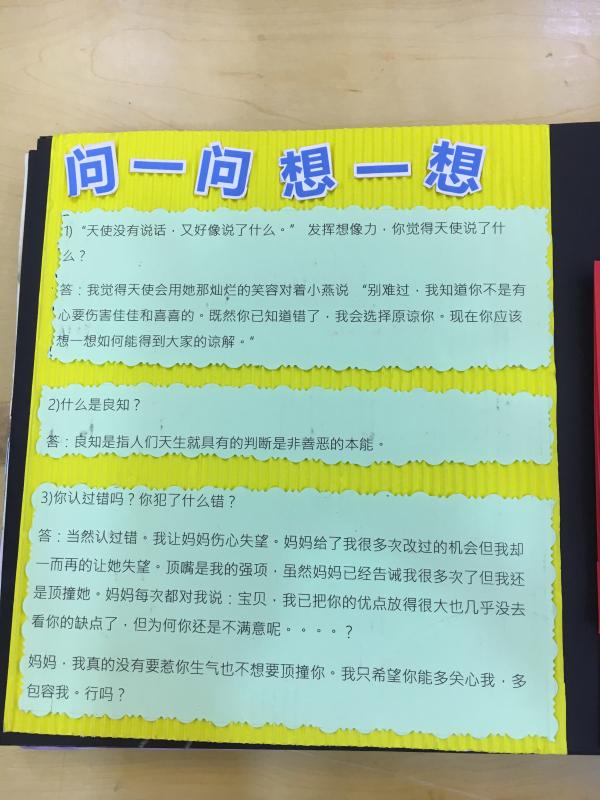 问一问 想一想
1) “天使没有说话，又好像说了什么。” 发挥想像力，你觉得天使说了什
么？
答：我觉得天使会用她那灿烂的笑容对着小燕说 “别难过，我知道你不是有
心要伤害佳佳和喜喜的。既然你已知道错了，我会选择原谅你。现在你应该
想一想如何能得到大家的谅解。”
2)什么是良知？
答：良知是指人们天生就具有的判断是非善恶的本能。
3)你认过错吗？你犯了什么错？
答：当然认过错。我让妈妈伤心失望。妈妈给了我很多次改过的机会但我却
一而再的让她失望。顶嘴是我的强项，虽然妈妈已经告诫我很多次了但我还
是顶撞她。妈妈每次都对我说：宝贝，我已把你的优点放得很大也几乎没去
看你的缺点了，但为何你还是不满意呢。。。。？
妈妈，我真的没有要惹你生气也不想要顶撞你。我只希望你能多关心我，多
包容我。行吗？